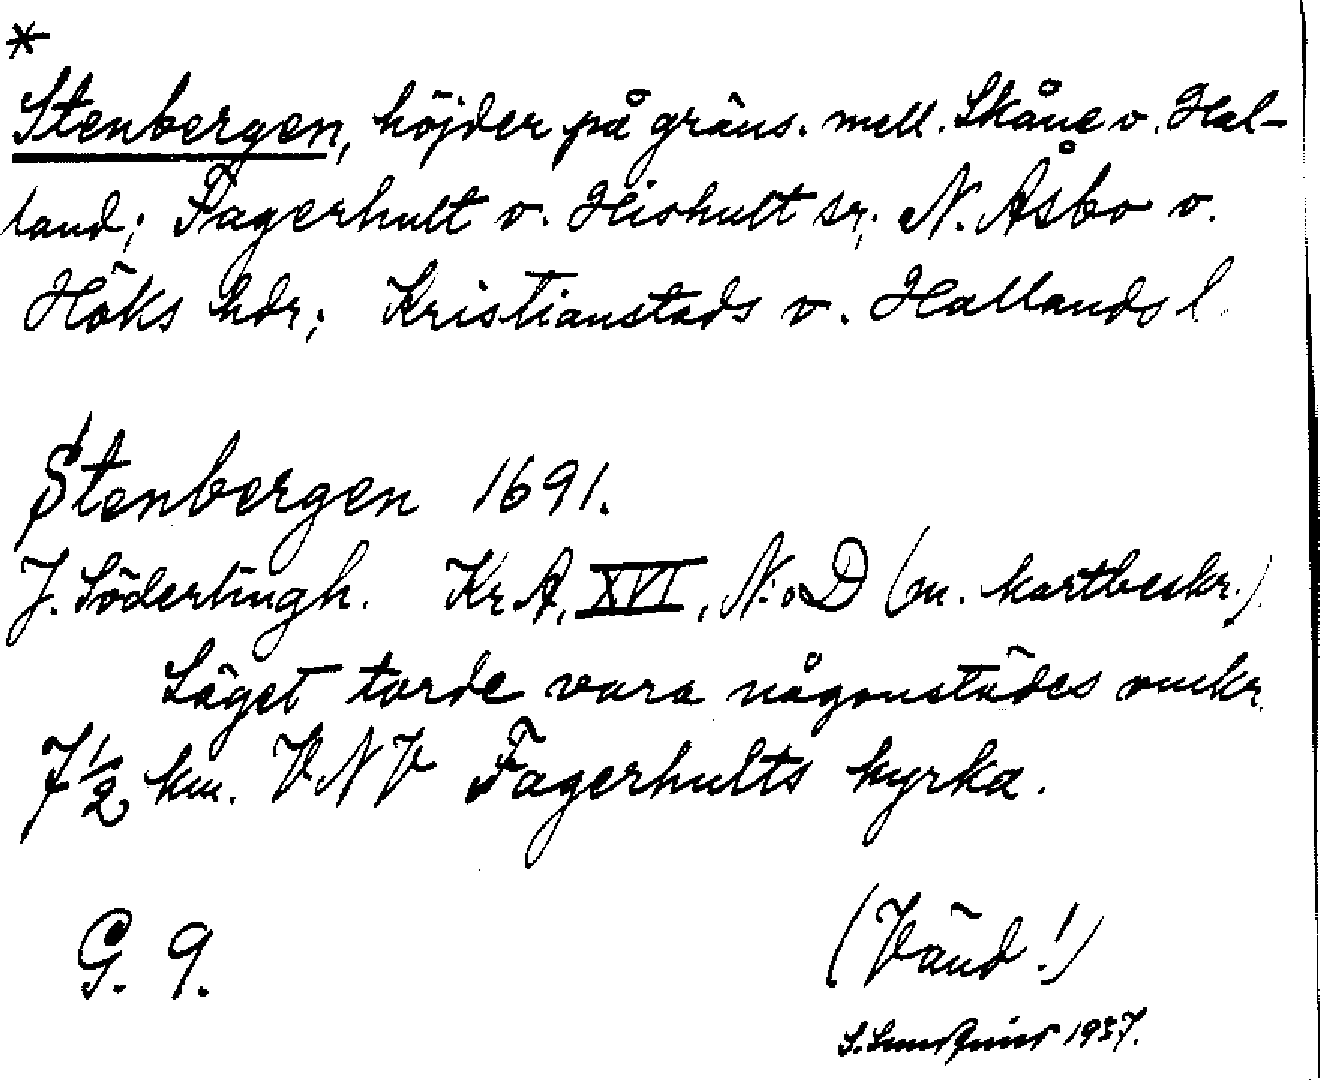 *
Stenbergen, höjder på gräns. mell. Skåne o. Hal-
land; Fagerhult o. Hishult sr; N. Åsbo o.
Höks hdr; Kristianstads o. Hallands l.
Stenbergen 1691.
J. Söderlingh. Kr. A. XVI, N:o D (m. kartbeskr.)
Läget torde vara någonstädes omkr.
7 1/2 km. VNV Fagerhults kyrka.
G. 9.
(Vänd!)
1937.